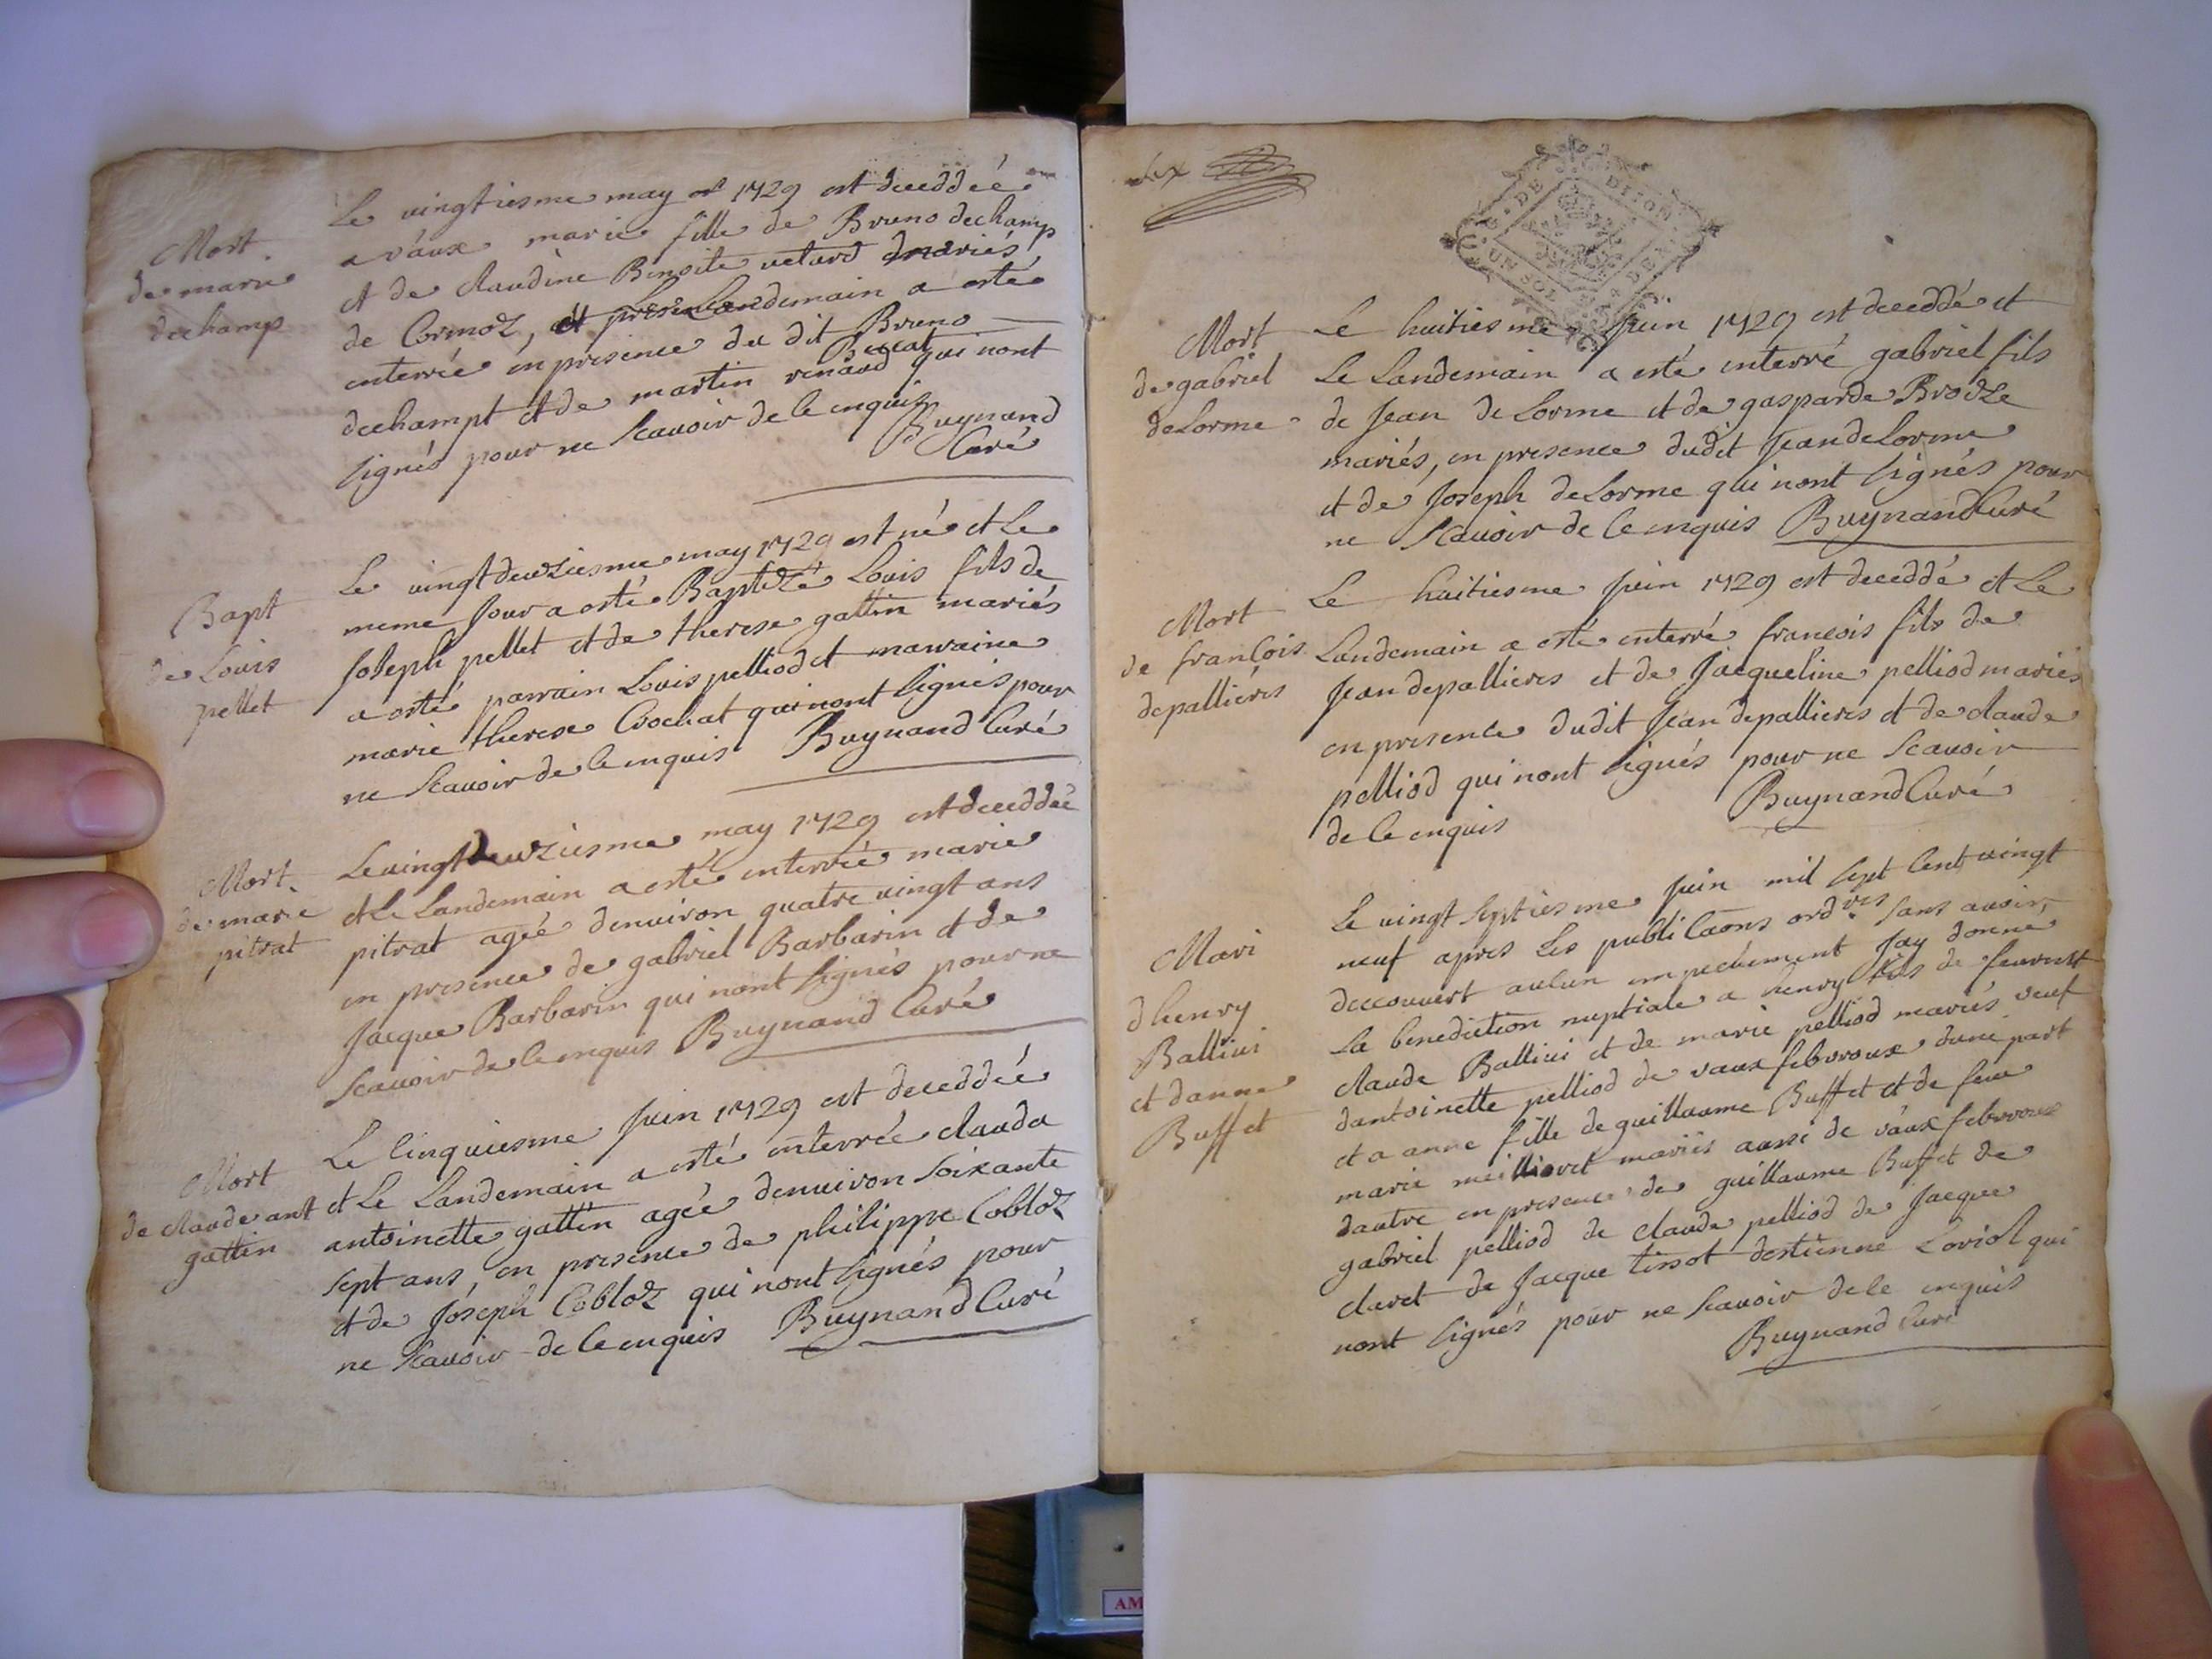 Mort
de marie
dechamp
Le vingtiesme may 1729 est deceddée
a vaux marie fille de Bruno dechamp
et de claudine Benoite velard mariés
de Cormoz, et Le Landemain a esté
enterrée en presence du dit Bruno
dechampt et de martin renaud qui nont
signés pour ne scavoir de ce enquis
Buynand
Curé
Bapt
de Louis
pellet
Le vingtdeuziesme may 1729 est né et Le
meme Jour a esté Baptizé Louis fils de
Joseph pellet et de therese gattin mariés
a esté parrain Louis pelliod et marraine
marie therese Crochat qui nont signés pour
ne scavoir de ce enquis Buynand Curé
Mort
de marie
pitrat
Le vingtdeuziesme may 1729 est deceddée
et Le Landemain a esté enterrée marie
pitrat agée denviron quatre vingt ans
en presence de gabriel Barbarin et de
Jacque Barbarin qui nont signés pour ne
scavoir de ce enquis Buynand Curé
Mort
de claude ant
gattin
Le cinquiesme Juin 1729 est deceddée
et Le Landemain a esté enterrée clauda
antoinette gattin agée denviron soixante
sept ans, en presence de philippe Cobloz
et de Joseph Cobloz qui nont signés pour
ne scavoir de ce enquis Buynand Curé
dix
G. DE DIJON
UN SOL
Mort
de gabriel
deLorme
Le huitiesme Juin 1729 est deceddé et
Le Landemain a esté enterré gabriel fils
de Jean de Lorme et de gasparde Brodze
mariés, en presence dudit Jean deLorme
et de Joseph deLorme qui nont signés pour
ne scavoir de ce enquis Buynand Curé
Mort
de francois
depallieres
Le huitiesme Juin 1729 est deceddé et Le
Landemain a esté enterré francois fils de
Jean depallieres et de Jacqueline pelliod mariés
en presence dudit Jean depallieres et de claude
pelliod qui nont signés pour ne scavoir
de ce enquis Buynand Curé
Mari
dhenry
Ballivi
et danne
Buffet
Le vingt septiesme Juin mil sept cent vingt
neuf apres Les publicaons ordres sans avoir
decouvert aucun empechement Jay donné
La benediction nuptiale a henry fils de
claude Ballivi et de marie pelliod mariés veuf
dantoinette pelliod de vaux febvroux dune part
et a anne fille de guillaume Buffet et de feue
marie meilloret mariés aussi de vaux febvroux
dautre en presence de guillaume Buffet de
gabriel pelliod de claude pelliod de Jacque
claret de Jacque tissot destienne Loriol qui
nont signés pour ne scavoir de ce enquis
Buynand Curé